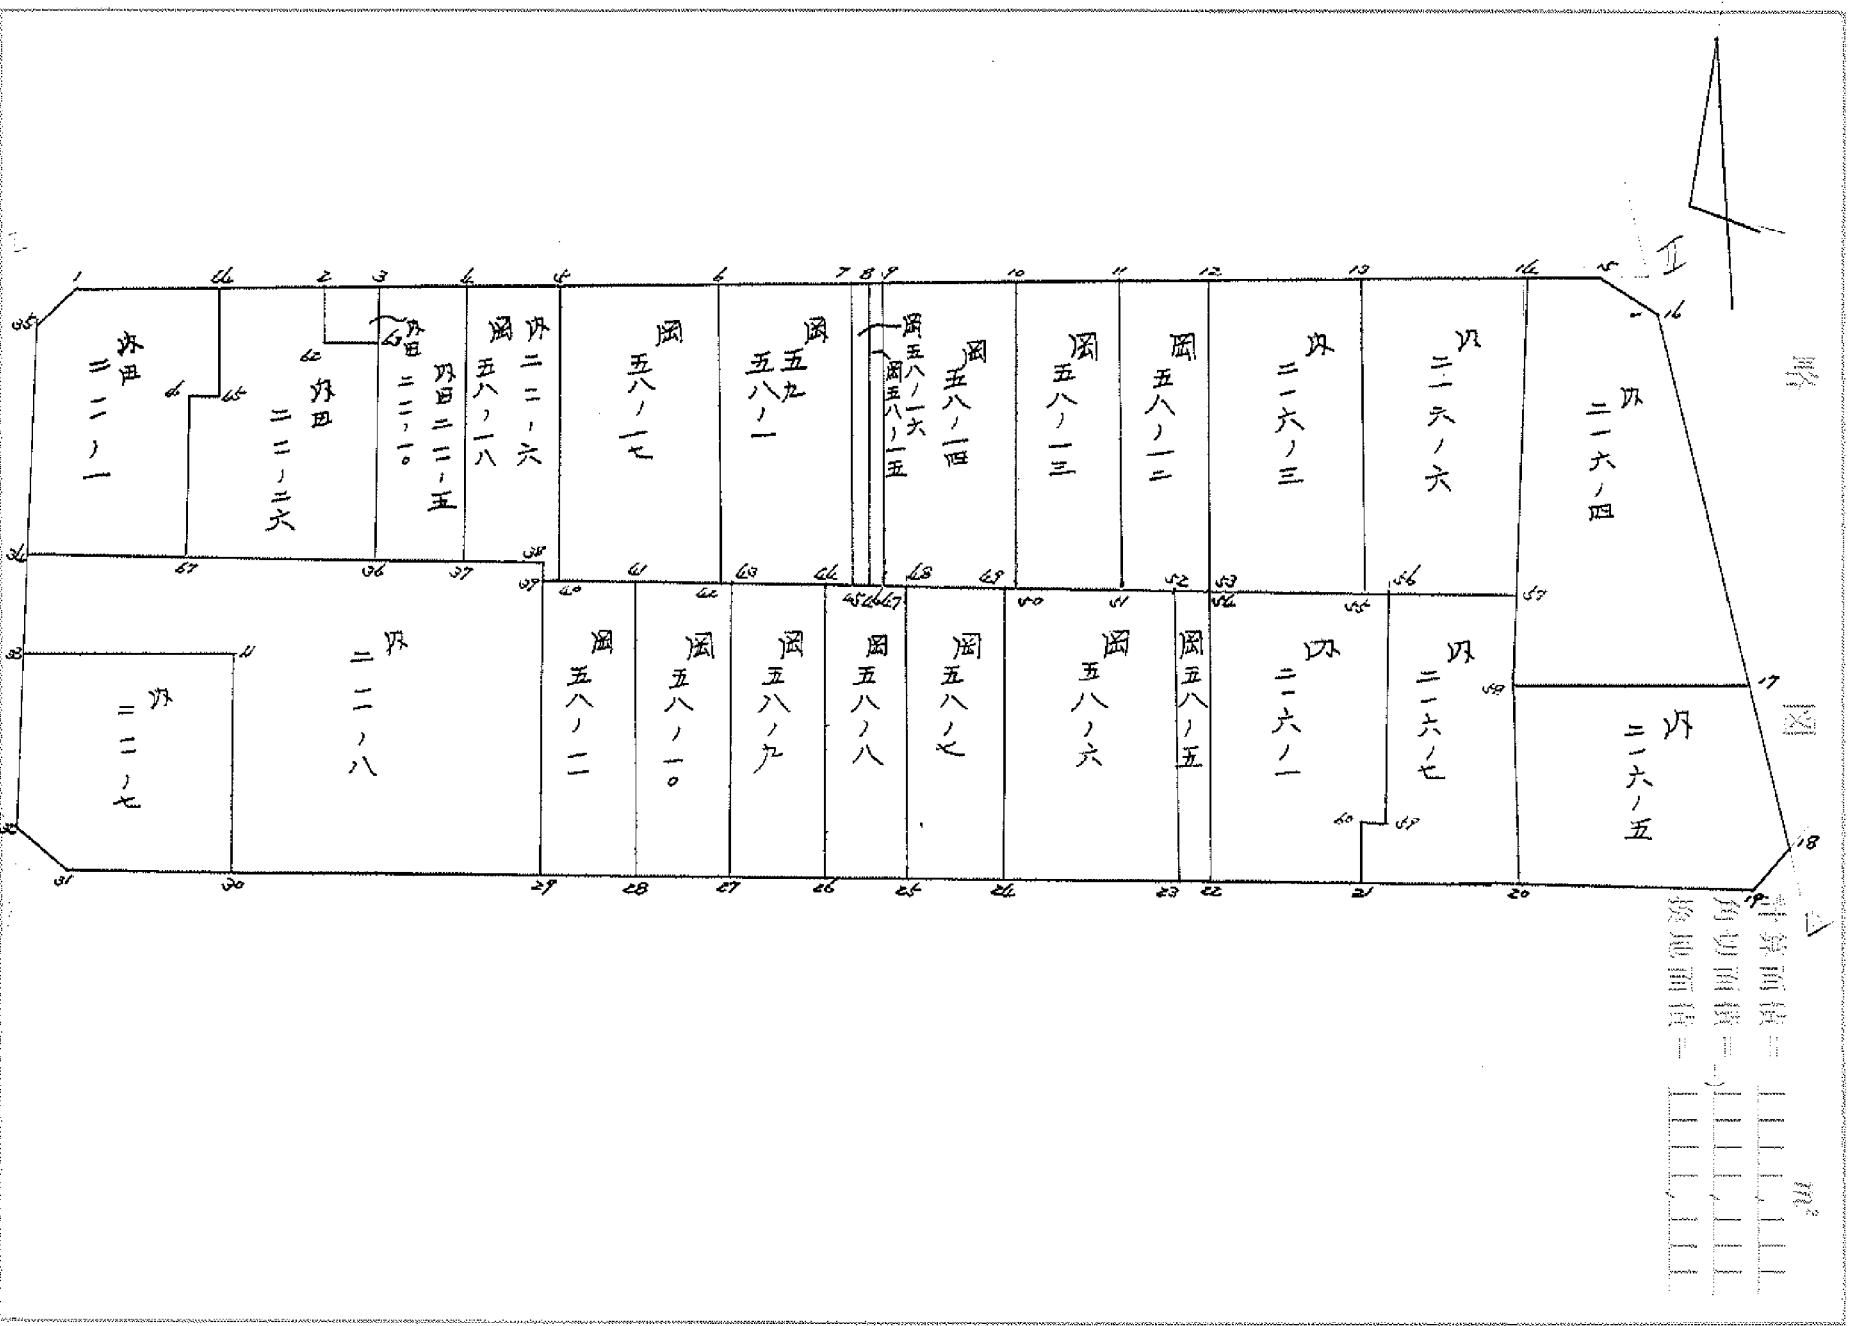 1
64
2
3
4
5
6
7
8
9
10
11
12
13
14
15
16
II
35
62
63
66
65
内田
二二ノ一
内田
二二ノ二六
内田
二二ノ一〇
内田二二ノ五
岡
五八ノ一八
内
二二ノ六
岡
五八ノ一七
岡
五九
五八ノ一
岡五八ノ一六
岡五八ノ一五
岡
五八ノ一四
岡
五八ノ一三
岡
五八ノ一二
内
二一六ノ三
内
二一六ノ六
内
二一六ノ四
34
67
36
37
38
39
40
41
42
43
44
45
46
47
48
49
50
51
52
53
54
55
56
57
33
58
17
内
二二ノ七
内
二二ノ八
岡
五八ノ一一
岡
五八ノ一〇
岡
五八ノ九
岡
五八ノ八
岡
五八ノ七
岡
五八ノ六
岡五八ノ五
内
二一六ノ一
内
二一六ノ七
内
二一六ノ五
60
59
32
31
30
29
28
27
26
25
24
23
22
21
20
19
18
図
計算面積=
角切面積=
換地面積=
m²